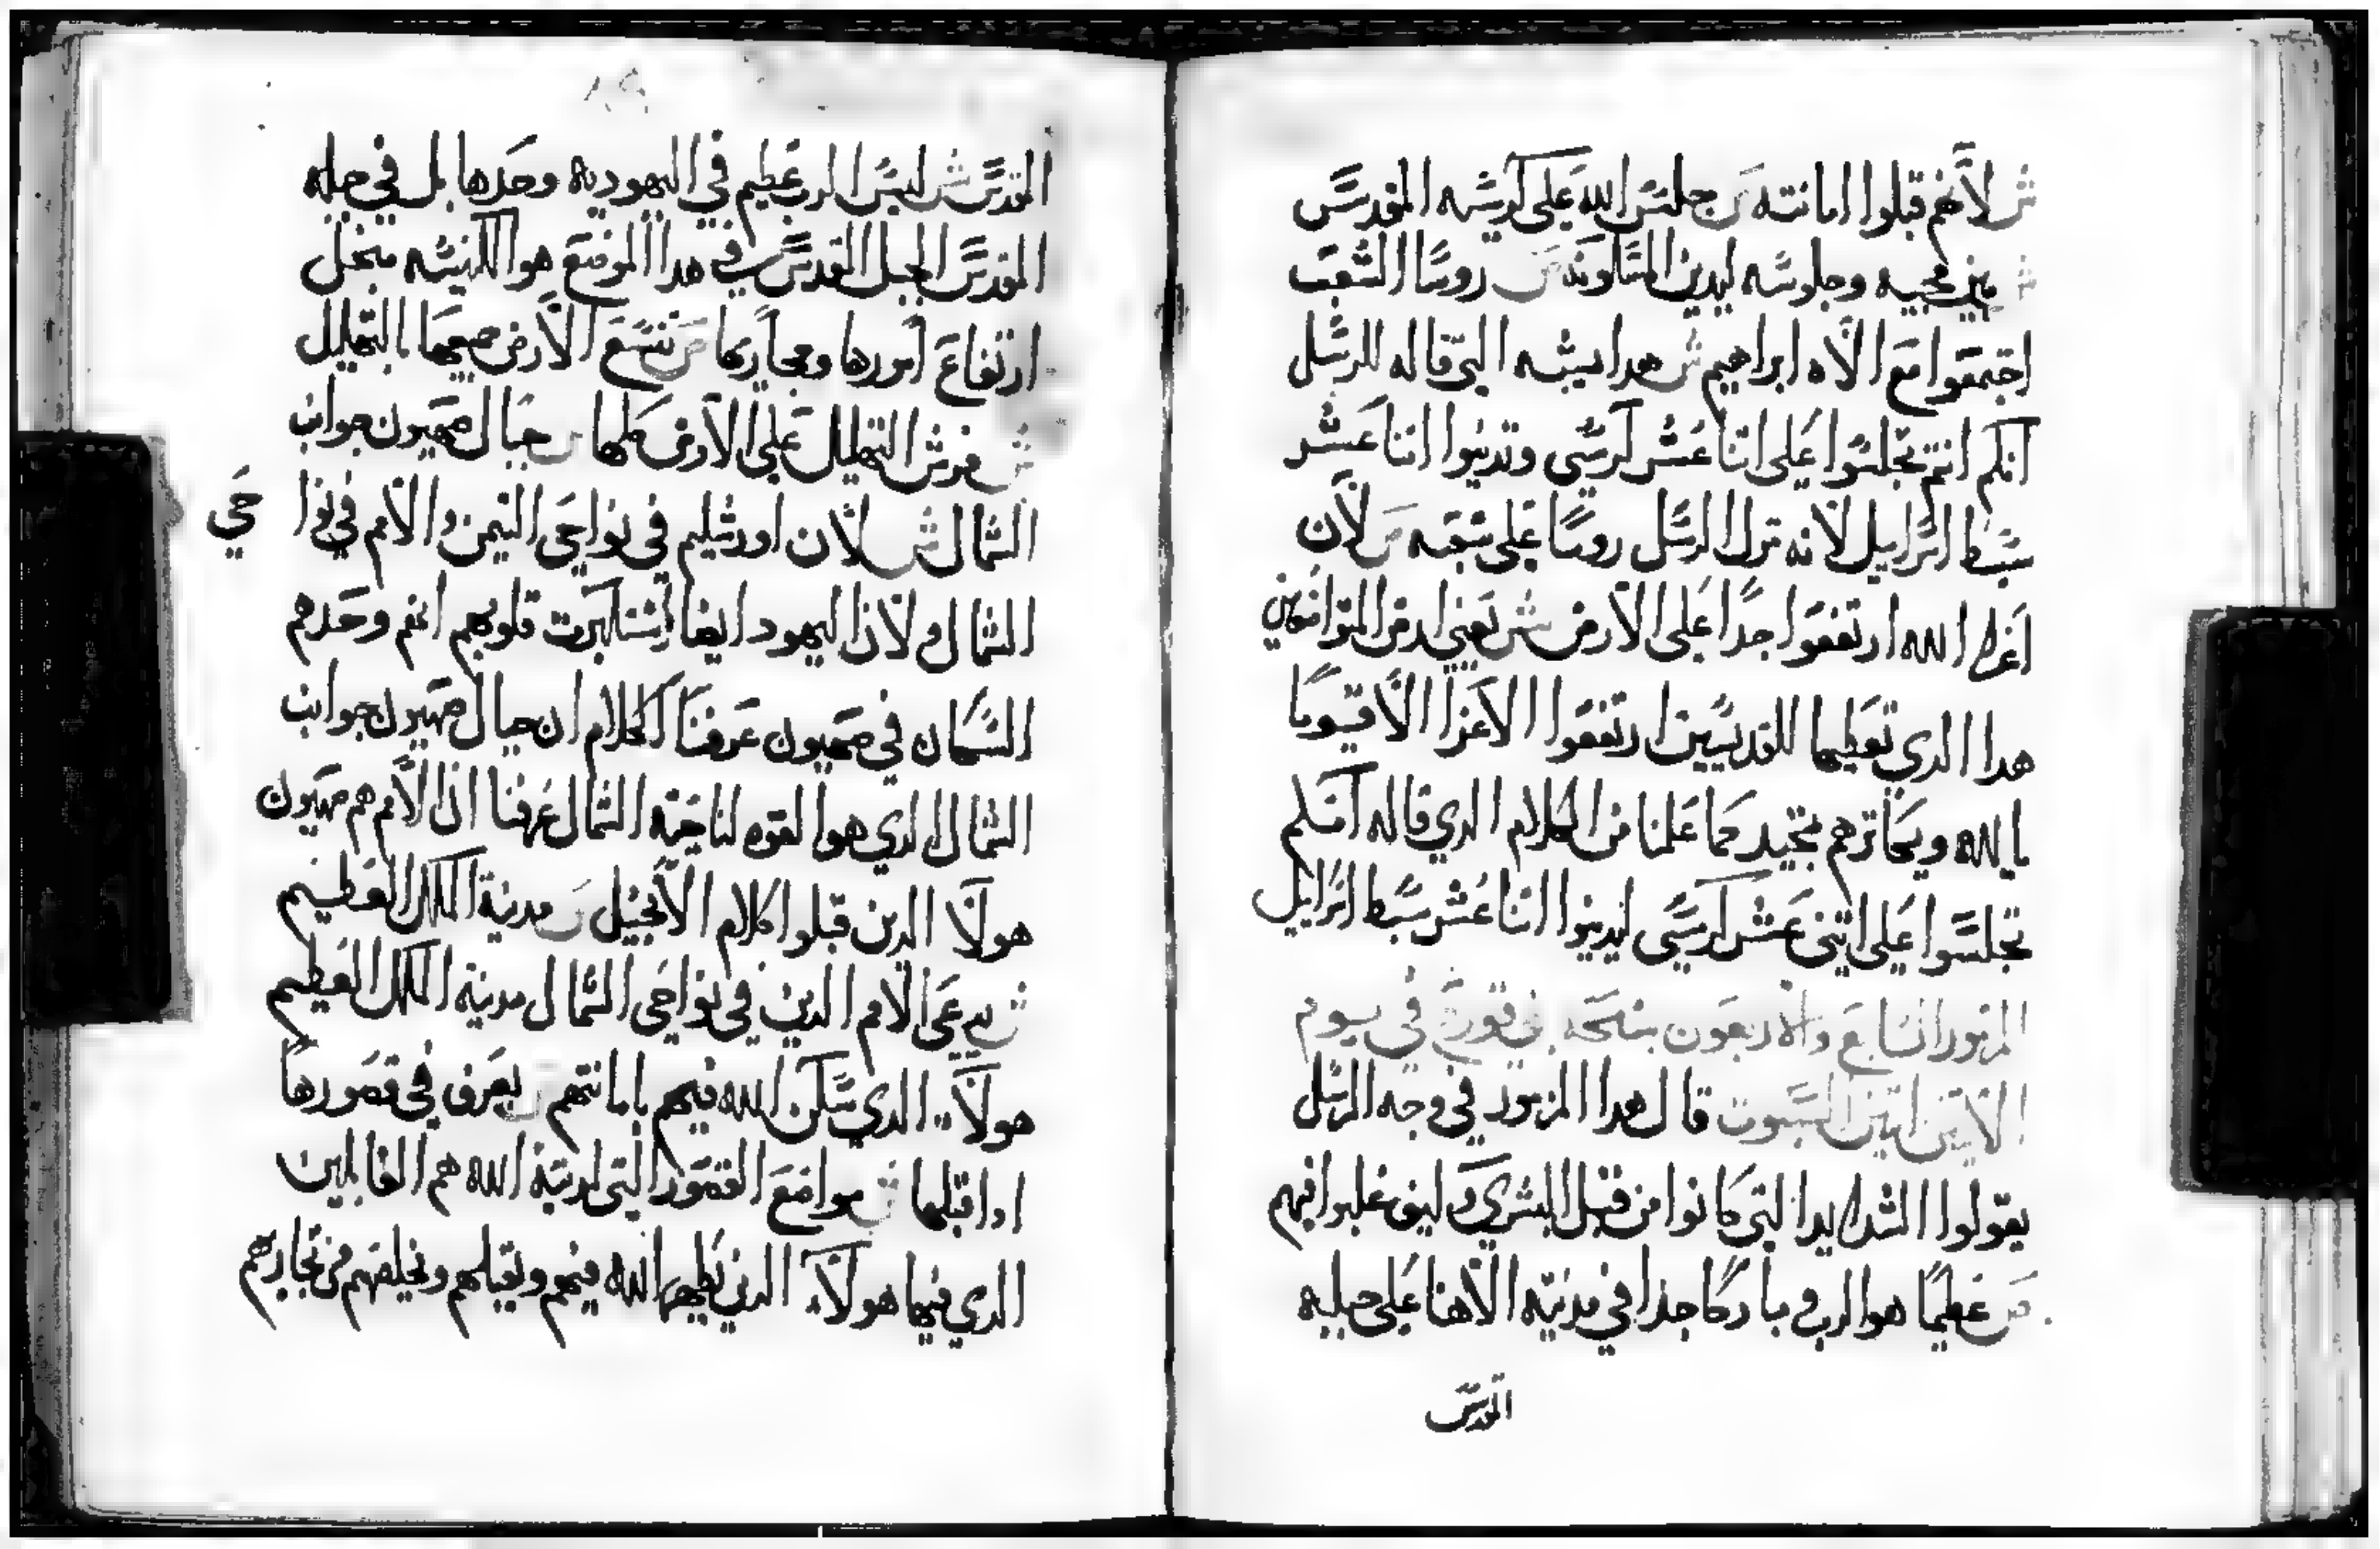 ش لانهم قبلوا امانته ص جلس الله على كرسيه المقدس
ش بين محبيه وجلوسه ليدين المساكونه ص روسا الشعب
اجتمعوا مع الاه ابراهيم ش هدا يشبه التي قاله للرسل
انكم انتم تجلسوا على اتنا عشر كرسي وتدينوا اتنا عشر
سبط اسرايل لانه ترك الرسل روسا على شعبه ص لان
اعزا الله ارتفعوا جدا على الارض ش تعني ارض المتواضعين
هدا الدي تعظيما للقديسين ارتفعوا الاعزا الاقويا
بالله ويجاترهم بتجيد كما علمنا من الكلام الدي قاله انكم
تجلسوا على اتني عشر كرسي ليدينوا اتنا عشر سبط اسرايل
المزمور السابع والاربعون بني قورح في يوم
الاتنين السبوت قال هدا المزمور في وجه الرسل
يقولوا الشدايد التي كانوا من قبل البشري وكيف غلبوا فيهم
ص عظيما هو الرب ومباركا جدا في مدينة الاهنا على جبله
المقدس
المقدس ش ليس الرب عظيم في اليهوديه وحدها بل في جبله
المقدس الجبل المقدس في هدا الموضع هو الكنيسه منجل
ارتفاع امورها ومجاريها ص تتسع الارض جميعها بالتهليل
ش فرش التهليل على الارض كلها ص جبال صهيون جوانب
الشمال ش لان اورشليم في نواحي التيمن والامم في نوا حي
الشمال ولان اليهود ايضا استكبرت قلوبهم انهم وحدهم
السكان في صهيون عرفنا الكلام ان جبال صهيون جوانب
الشمال الدي هو القوه لناحية الشمال عرفنا ان الامم هم صهيون
هولا الدين قبلوا كلام الانجيل ص مدينة الملك العظيم
ش يدعى الامم الدين في نواحي الشمال مدينة الملك العظيم
هولاء الدي سكن الله فيهم بامانتهم ص يعرف في قصورها
ادا قبلها ش مواضع القصور التي لمدينة الله هم القابلين
الدي فيها هولاء الدين يظهر الله فيهم ويقبلهم ويخلصهم من تجاربهم